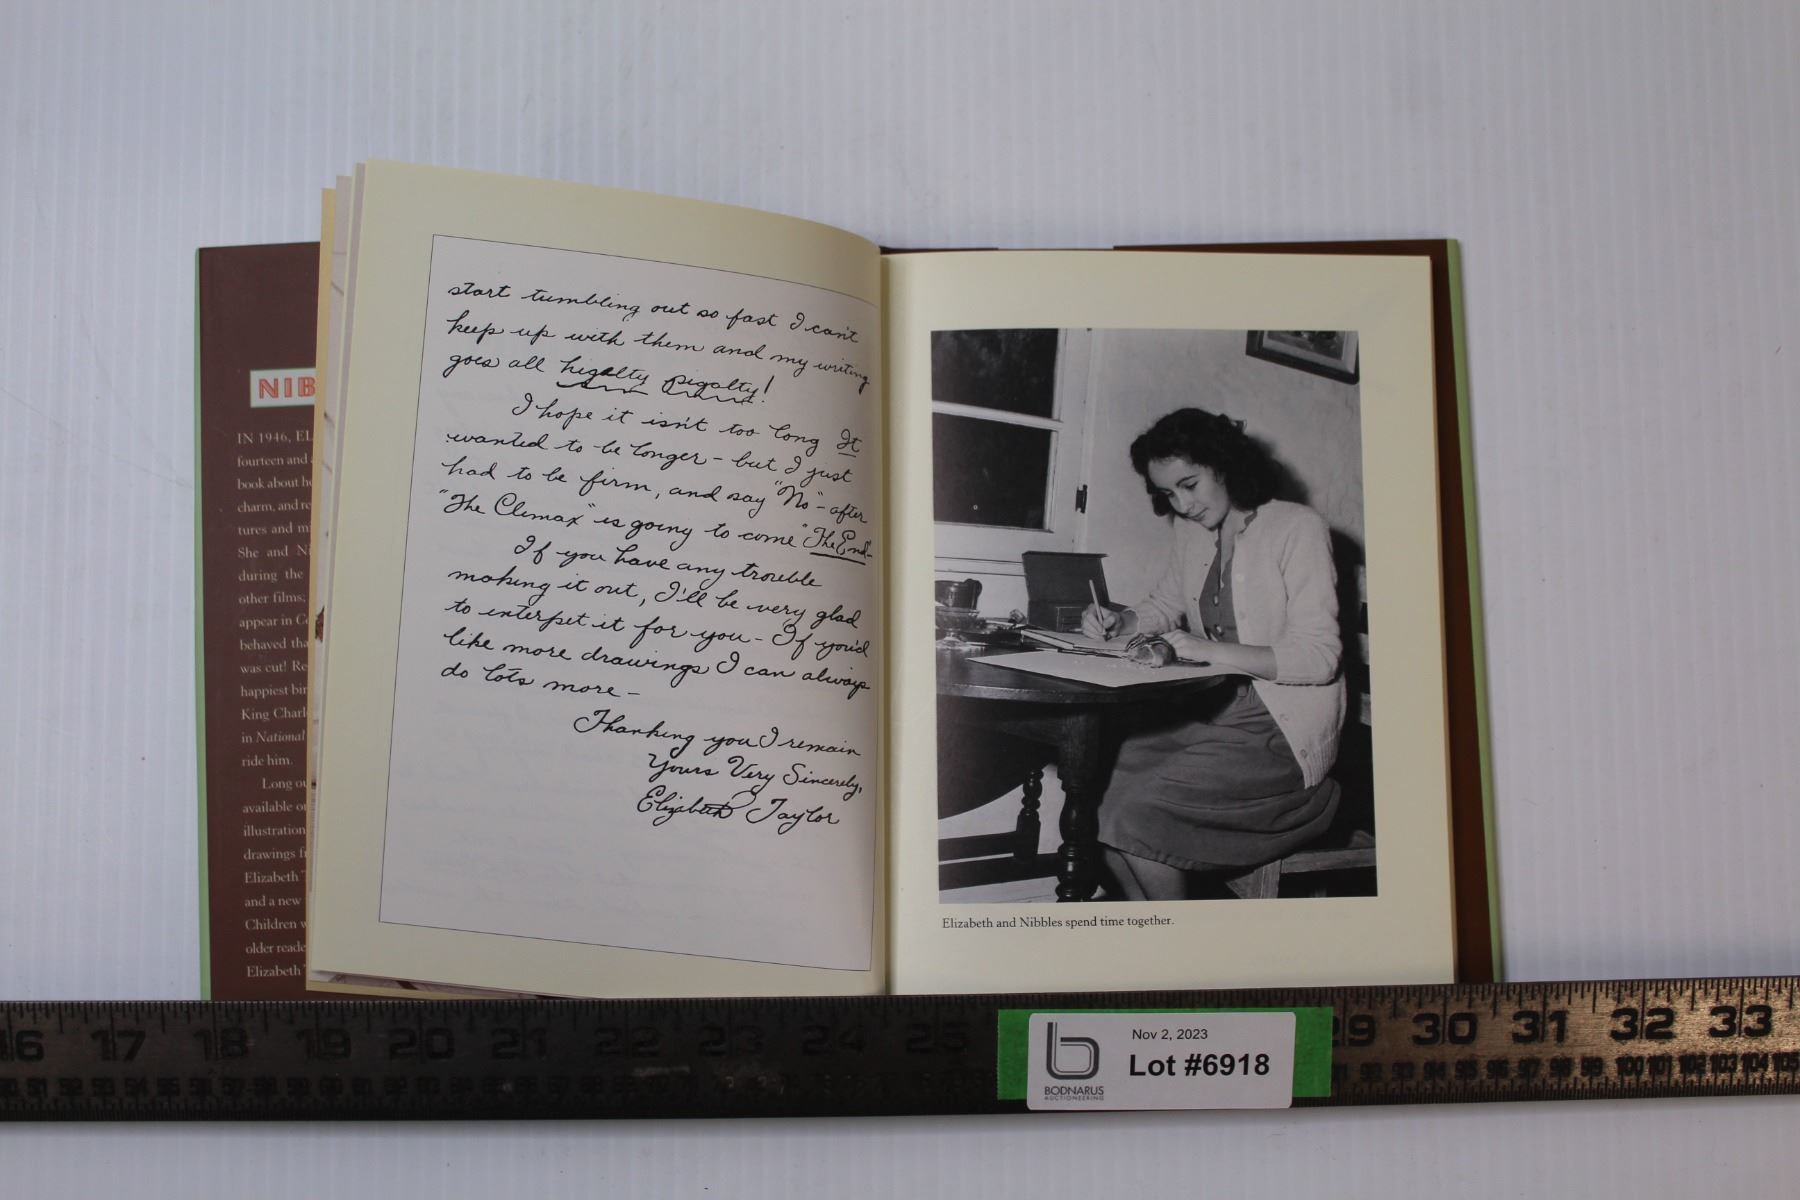 start tumbling out so fast I can't
keep up with them and my writing
goes all higalty pigalty!
I hope it isn't too long It
wanted to be longer - but I just
had to be firm, and say "No" - after
"The Climax" is going to come "The End" -
If you have any trouble
making it out, I'll be very glad
to interpet it for you - If you'd
like more drawings I can always
do lots more -
Thanking you I remain
Yours Very Sincerely,
Elizabeth Taylor
NIB
IN 1946, EL
fourteen and
book about he
charm, and re
tures and m
She and Ni
during the
other films;
appear in Co
behaved tha
was cut! Re
happiest bir
King Charl
in National
ride him.
Long ou
available o
illustration
drawings f
Elizabeth T
and a new
Children w
older reade
Elizabeth T
Elizabeth and Nibbles spend time together.
16 17 18 19 20 21 22 23 24 25 29 30 31 32 33
51 52 53 54 55 56 57 58 59 60 100 101 102 103 104 105
Nov 2, 2023
Lot #6918
b
BODNARUS
AUCTIONEERING